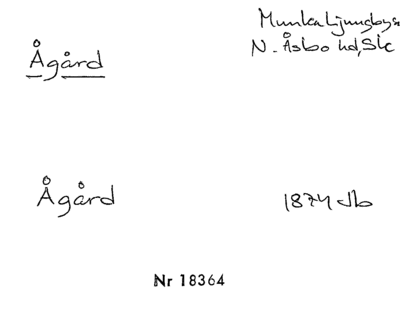 Ågård
Munka Ljungby sn
N. Åsbo hd, Sk
Ågård
1874 Jb
Nr 18364